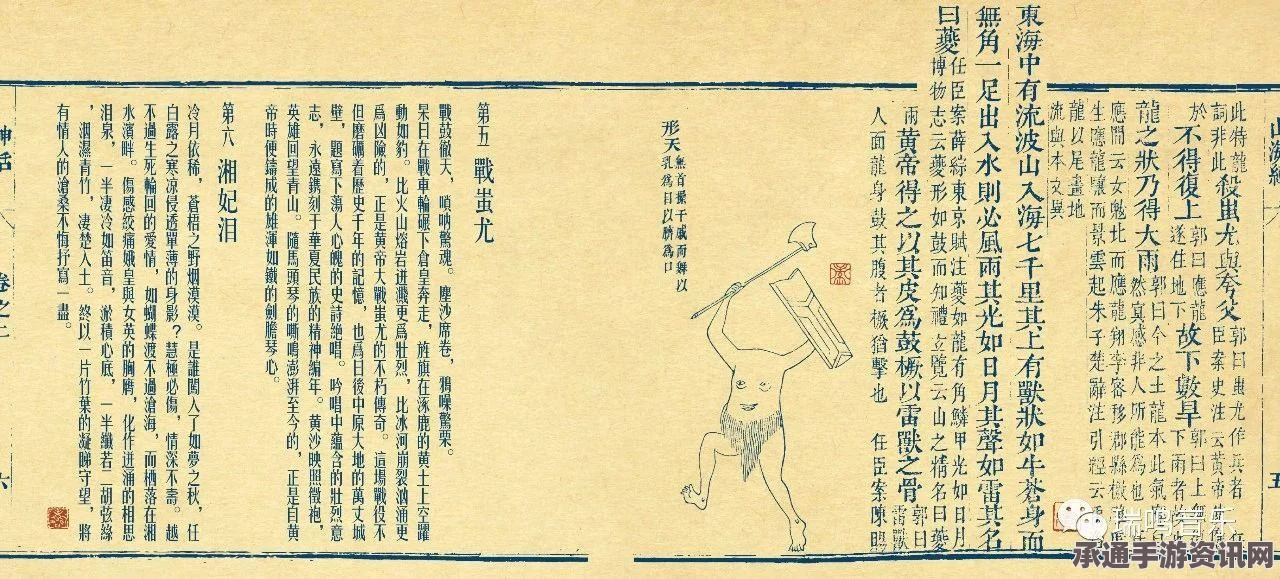 山海經
五
此特龍
詞非此
殺蚩尤與夸父
郭曰蚩尤作兵者
臣案史注云黃帝
不得復上
於
郭曰應龍
遂住地下
故下數旱
郭曰上無
下雨者
龍之狀乃得大雨
郭曰今之土龍本此氣
然冥感非人所能為也
應聞云女魃北而應龍翔李容移郡縣檄
生應龍驤而景雲起朱子楚辭注引經云
龍以尾畫地
流與本文異
東海中有流波山入海七千里其上有獸狀如牛蒼身而
無角一足出入水則必風雨其光如日月其聲如雷其名
曰夔
任臣案薛綜東京賦注夔如龍有角鱗甲光如日月
博物志云夔形如鼓而知禮立覽云山之精名曰夔
雨
黃帝得之以其皮為鼓橛以雷獸之骨
郭曰
雷獸
人面龍身鼓其腹者橛猶擊也 任臣案陳暘
形天
無首操干戚而舞以
乳為目以臍為口
第五 戰蚩尤
戰鼓徹天，嗩吶驚魂。塵沙席卷，鴉噪驚栗。
杲日在戰車輪碾下倉皇奔走，旌旗在涿鹿的黄土上空躍
動如豹。比火山熔岩迸濺更爲壯烈，比冰河崩裂汹涌更
爲凶險的，正是黄帝大戰蚩尤的不朽傳奇。這場戰役不
但磨礪着歷史千年的記憶，也爲日後中原大地的萬丈城
壁，題寫下蕩人心魄的史詩絶唱。吟唱中藴含的壯烈意
志，永遠鐫刻于華夏民族的精神編年。黄沙映照徵袍，
英雄回望青山。隨馬頭琴的嘶鳴澎湃至今的，正是自黄
帝時便鑄成的雄渾如鐵的劍膽琴心。
第六 湘妃泪
冷月依稀，蒼梧之野烟漠漠。是誰闖入了如夢之秋，任
白露之寒凉侵透單薄的身影？慧極必傷，情深不壽。越
不過生死輪回的愛情，如蝴蝶渡不過滄海，而栖落在湘
水濱畔。傷感絞痛娥皇與女英的胸膺，化作迸涌的相思
泪泉，一半凄冷如笛音，淤積心底，一半纖若二胡弦絲
，洇濕青竹，凄楚入土。終以一片竹葉的凝睇守望，將
有情人的滄桑不悔抒寫一盡。
神话
卷之二
六
瑞鸣音乐
承通手游资讯网